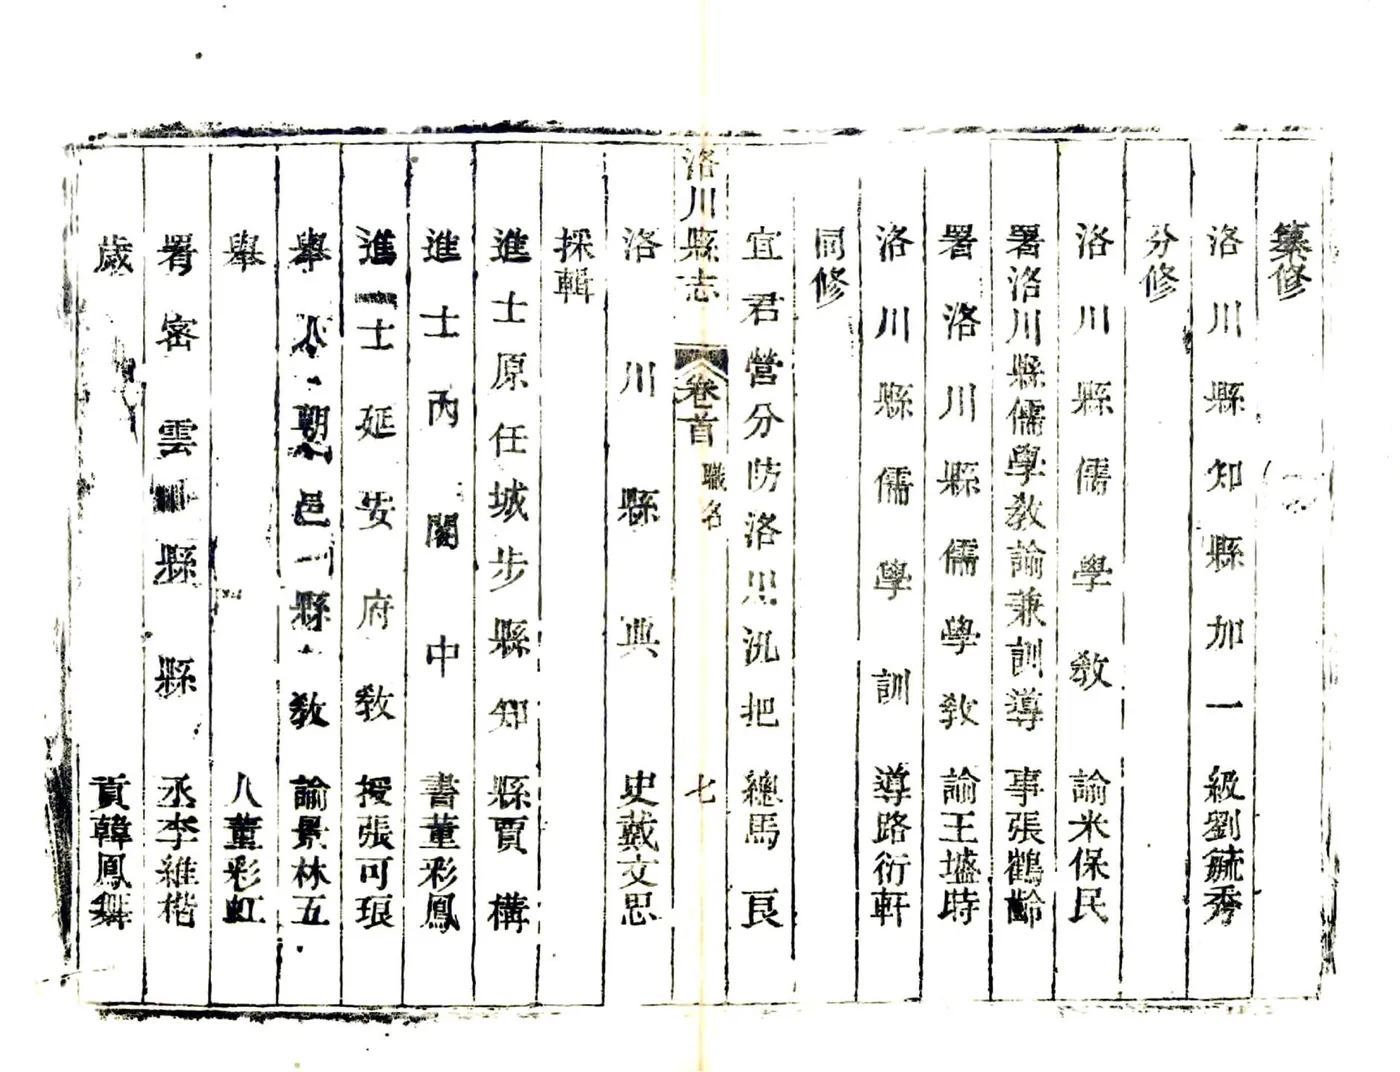 纂修
洛川縣知縣加一級劉毓秀
分修
洛川縣儒學教諭米保民
署洛川縣儒學教諭兼訓導事張鶴齡
署洛川縣儒學教諭王墭時
洛川縣儒學訓導路衍軒
同修
宜君營分防洛思汛把總馬良
洛川縣志 卷首 職名 七
洛川縣典史戴文思
採輯
進士原任城步縣知縣賈構
進士內閣中書董彩鳳
進士延安府教授張可琅
舉人朝邑縣教諭景林五
舉人董彩虹
署密雲縣縣丞李維楷
歲貢韓鳳舞